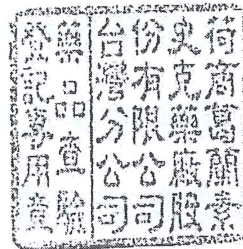 荷商葛蘭素
史克藥廠股
份有限公司
台灣分公司
藥品查驗
登記專用章